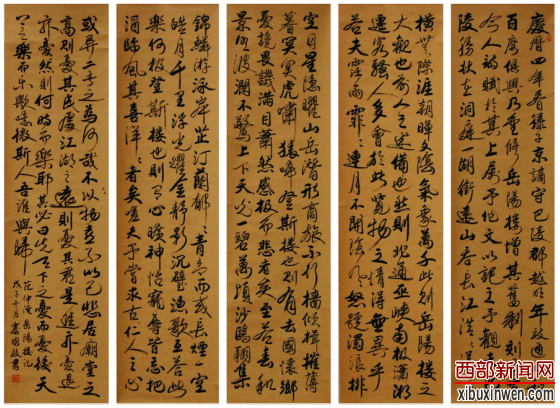 慶曆四年春滕子京謫守巴陵郡越明年政
百廢俱興乃重修岳陽樓增其舊制刻
今人詩賦於其上屬予作文以記之予觀
陵勝狀在洞庭一湖銜遠山吞長江浩
橫無際涯朝暉夕陰氣象萬千此則岳陽樓之
大觀也前人之述備矣然則北通巫峽南極瀟湘
遷客騷人多會於此覽物之情得無異乎
若夫霪雨霏霏連月不開陰風怒號濁浪排
空日星隱耀山岳潛形商旅不行檣傾楫摧薄
暮冥冥虎嘯猿啼登斯樓也則有去國懷鄉
憂讒畏譏滿目蕭然感極而悲者矣至若春和
景明波瀾不驚上下天光一碧萬頃沙鷗翔集
錦鱗游泳岸芷汀蘭郁〻青〻而或長煙一空
皓月千里浮光耀金靜影沉璧漁歌互答此
樂何極登斯樓也則有心曠神怡寵辱皆忘把
酒臨風其喜洋〻者矣嗟夫予嘗求古仁人之心
或異二者之為何哉不以物喜不以己悲居廟堂之
高則憂其民處江湖之遠則憂其君是進亦憂退
亦憂然則何時而樂耶其必曰先天下之憂而憂後天
下之樂而樂歟噫微斯人吾誰與歸
范仲淹岳陽樓記
戊子冬月
西部新闻网
www.xibuxinwen.cn